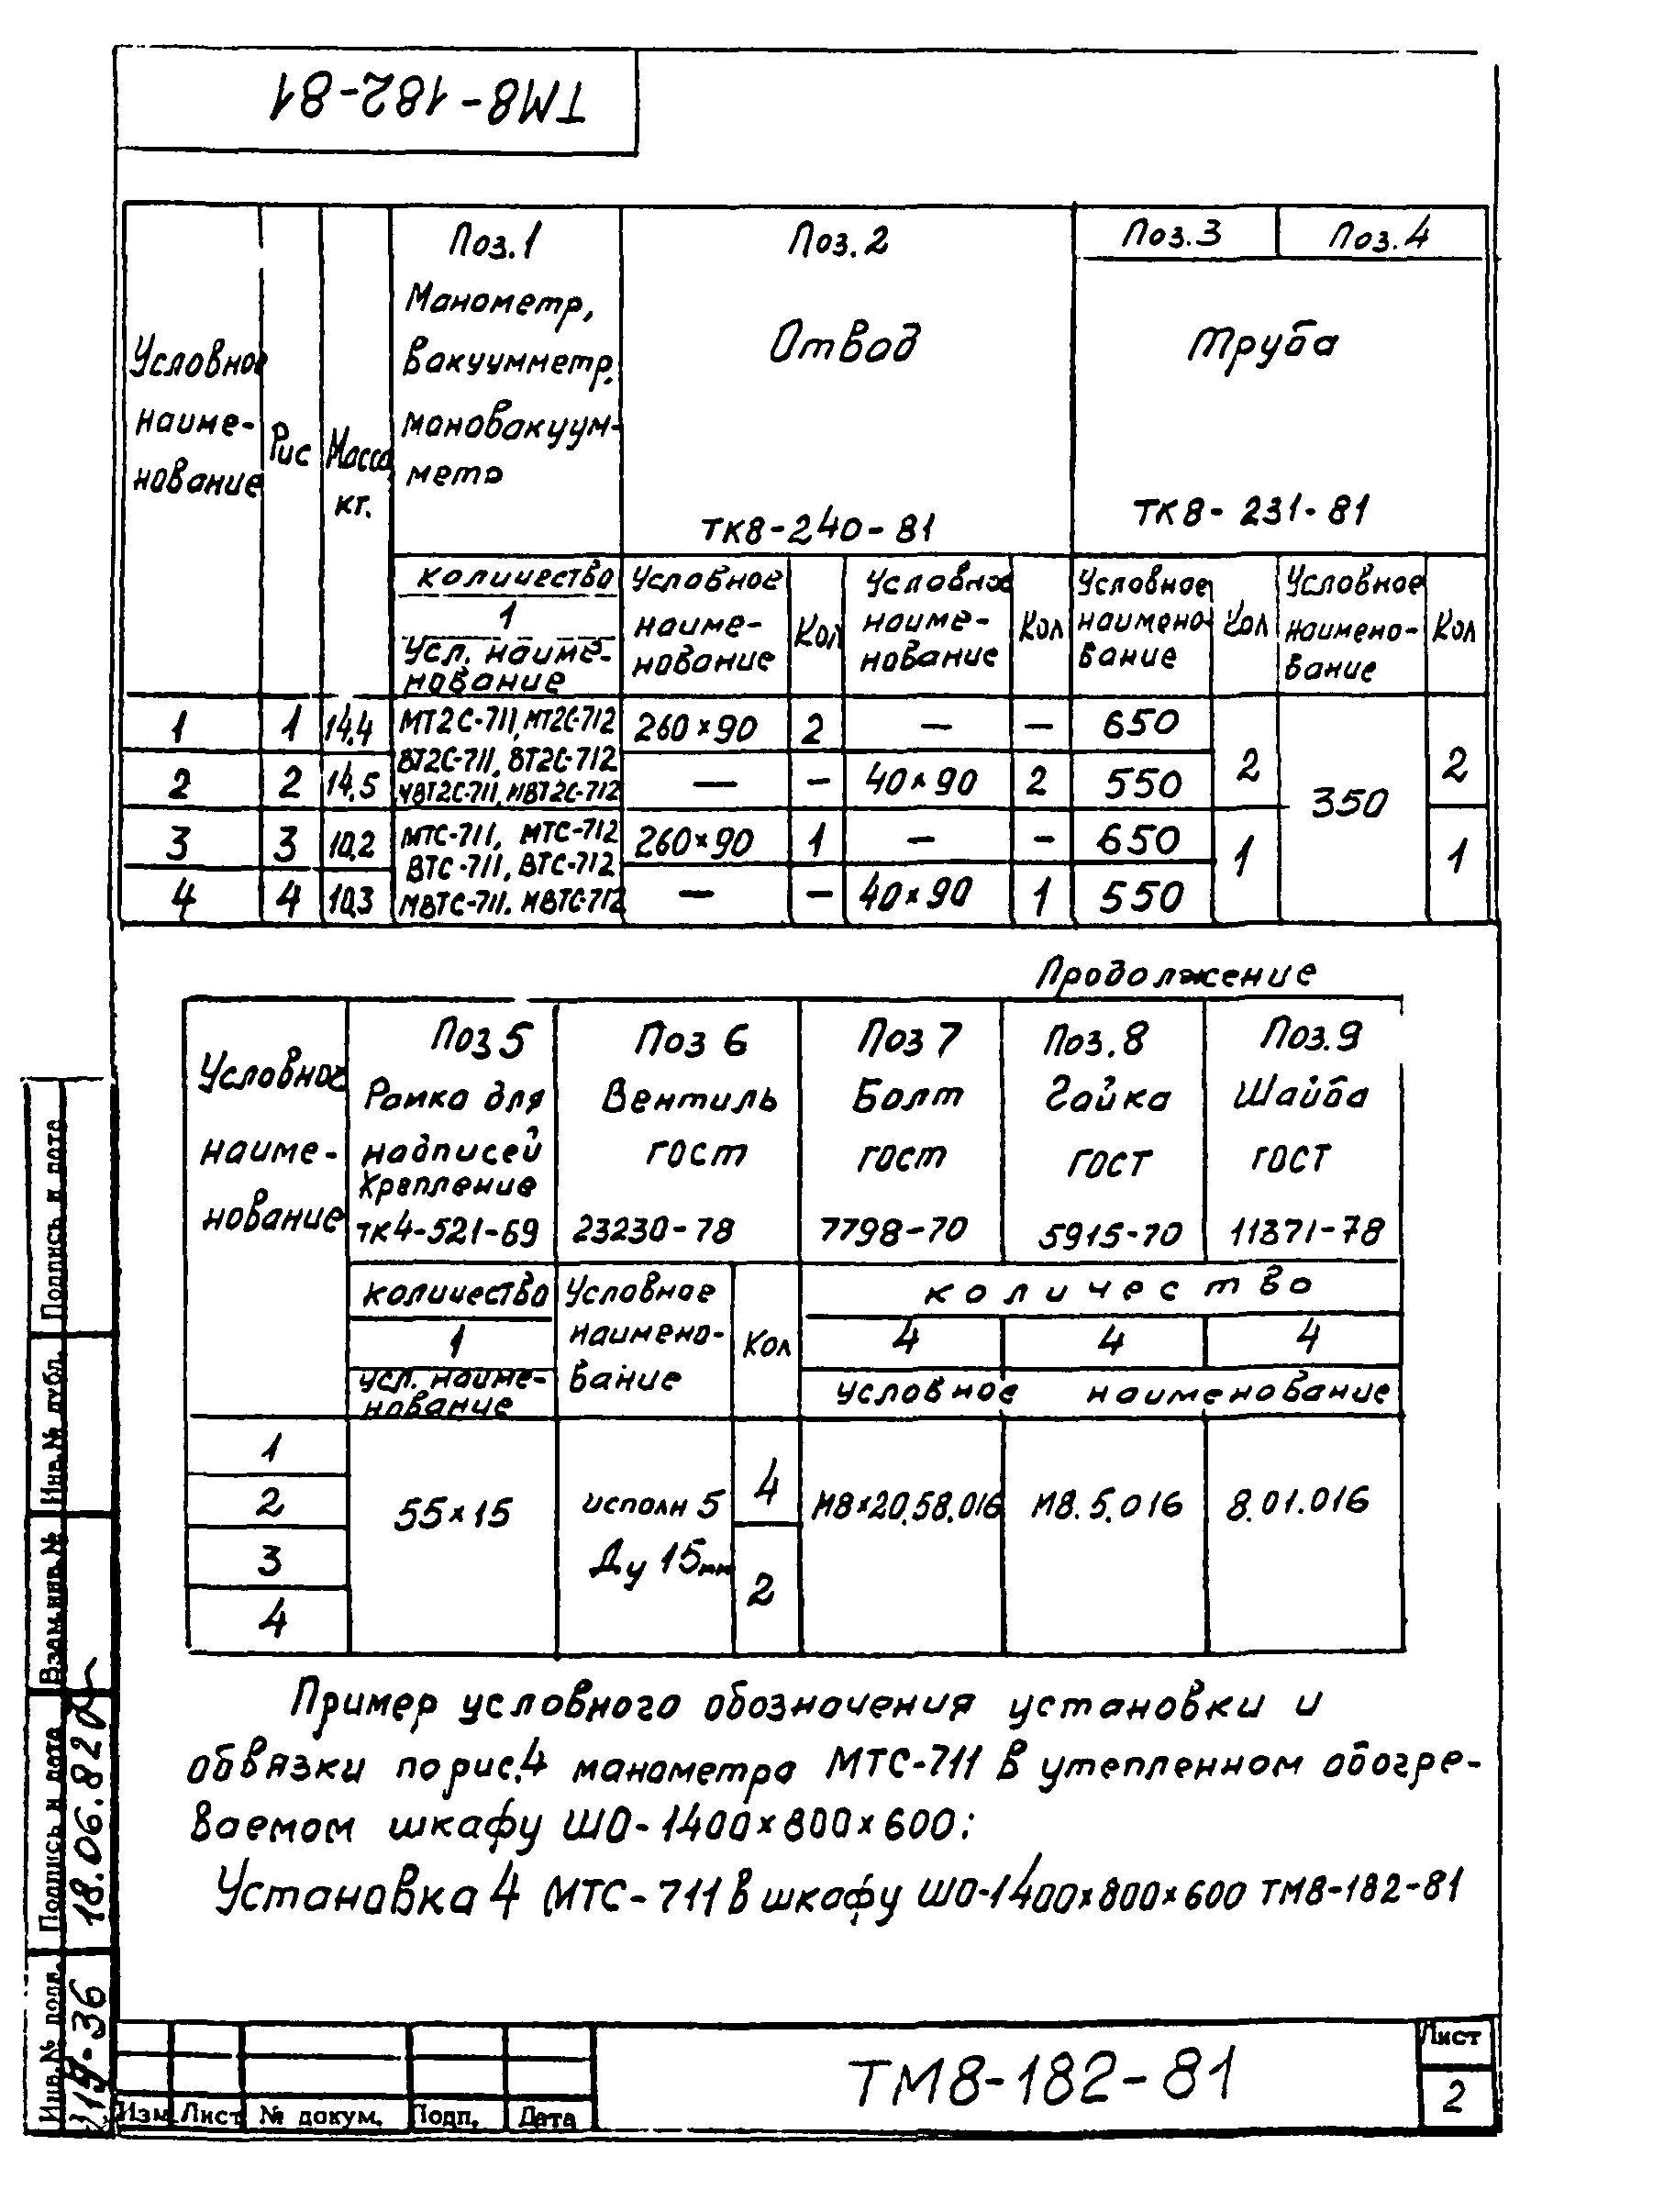 ТМ8-182-81
Условное наиме-нование
Рис
Масса кг.
Поз.1
Манометр,
вакуумметр,
мановакуум-
метр
количество
1
Усл. наиме-
нование
Поз.2
Отвод
ТК8-240-81
Условное наиме-нование
Кол
Условное наиме-нование
Кол
Поз.3
Поз.4
Труба
ТК8-231-81
Условное наимено-вание
Кол
Условное наимено-вание
Кол
1 1 14,4 МТ2С-711, МТ2С-712 260×90 2 — — 650
ВТ2С-711, ВТ2С-712
2 2 14,5 МВТ2С-711, МВТ2С-712 — — 40×90 2 550 2 350 2
3 3 10,2 МТС-711, МТС-712 260×90 1 — — 650
ВТС-711, ВТС-712 1 1
4 4 10,3 МВТС-711, МВТС-712 — — 40×90 1 550
Продолжение
Условное
наиме-
нование
Поз 5
Рамка для
надписей
Крепление
ТК4-521-69
количество
1
усл. наиме-
нование
Поз 6
Вентиль
ГОСТ
23230-78
Условное
наимено-
вание
Кол
Поз 7
Болт
ГОСТ
7798-70
Поз.8
Гайка
ГОСТ
5915-70
Поз.9
Шайба
ГОСТ
11371-78
количество
4 4 4
условное наименование
1
2
3
4
55×15
исполн 5
Ду 15мм
4
2
М8×20.58.016
М8.5.016
8.01.016
Пример условного обозначения установки и
обвязки по рис.4 манометра МТС-711 в утепленном обогре-
ваемом шкафу ШО-1400×800×600:
Установка 4 МТС-711 в шкафу ШО-1400×800×600 ТМ8-182-81
Подпись и дата
Инв.№ дубл.
Взам.инв.№
Подпись и дата
18.06.82
Инв.№ подл.
Изм. Лист № докум. Подп. Дата
ТМ8-182-81
Лист
2